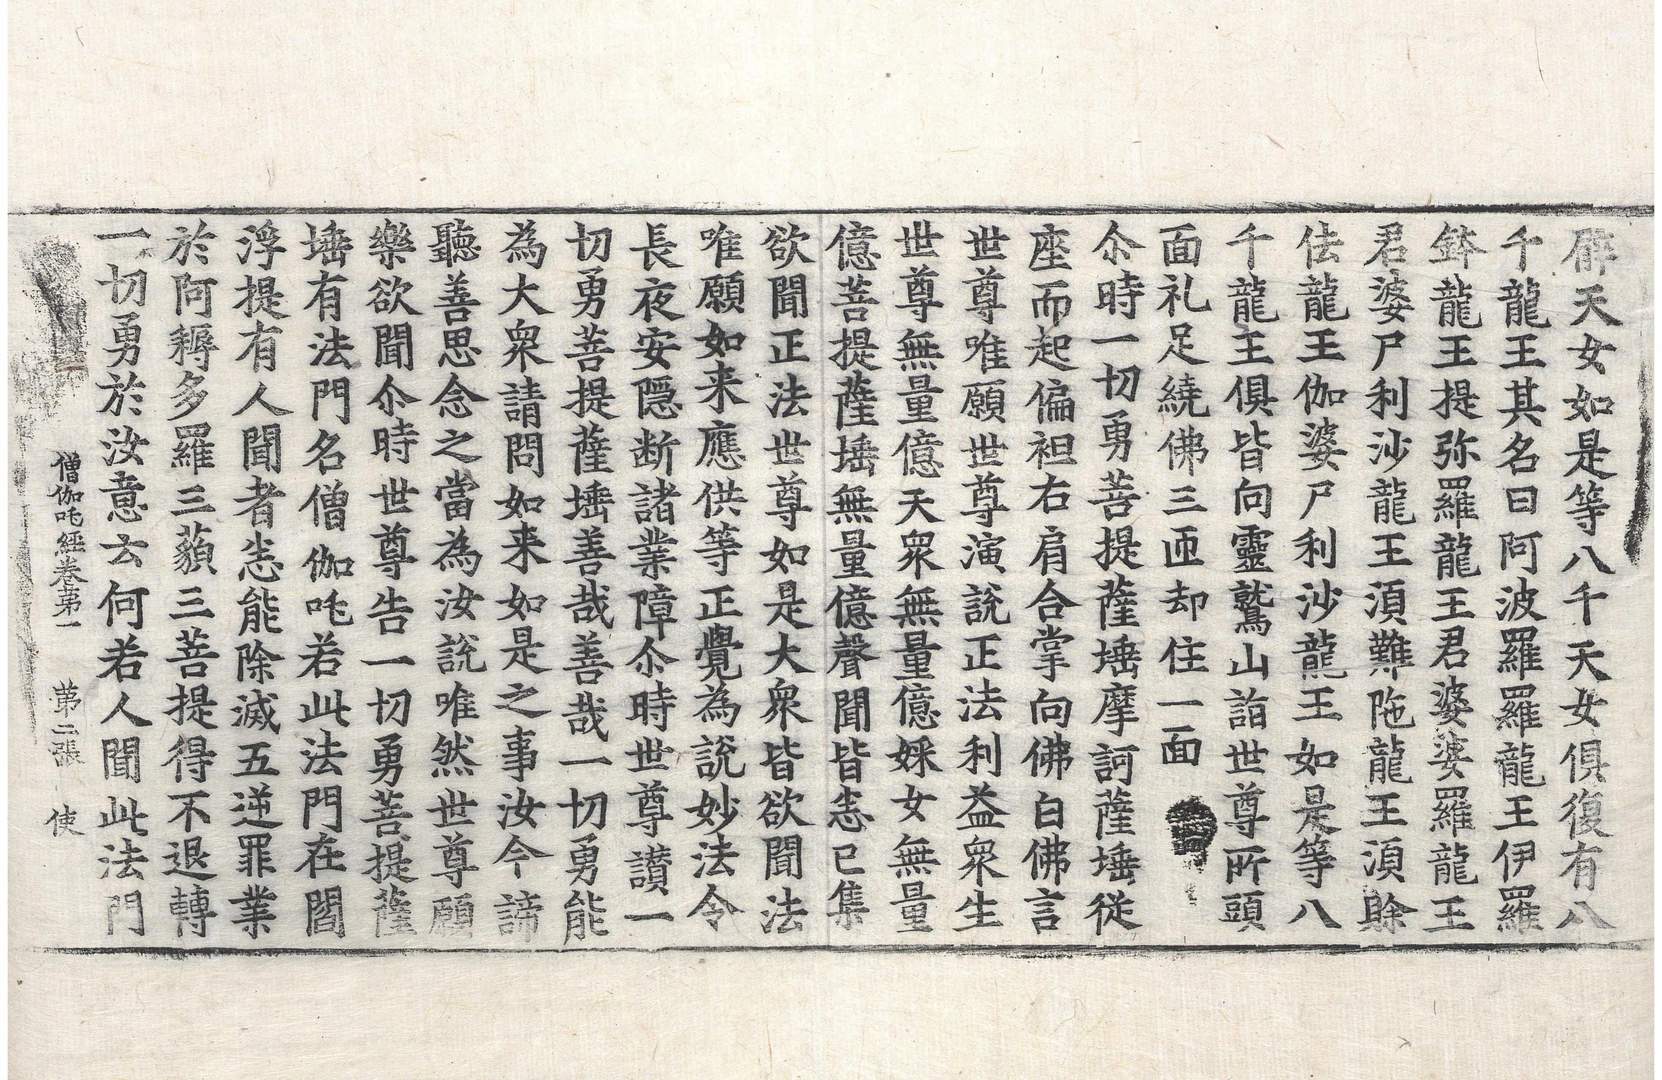 僻天女如是等八千天女俱復有八
千龍王其名曰阿波羅羅龍王伊羅
鉢龍王提弥羅龍王君婆婆羅龍王
君婆尸利沙龍王湏難陁龍王湏賒
佉龍王伽婆尸利沙龍王如是等八
千龍王俱皆向靈鷲山詣世尊所頭
面礼足繞佛三迊却住一面
尒時一切勇菩提薩埵摩訶薩埵従
座而起偏袒右肩合掌向佛白佛言
世尊唯願世尊演說正法利益衆生
世尊無量億天衆無量億婇女無量
億菩提薩埵無量億聲聞皆悉已集
欲聞正法世尊如是大衆皆欲聞法
唯願如来應供等正覺為說妙法令
長夜安隱断諸業障尒時世尊讃一
切勇菩提薩埵善哉善哉一切勇能
為大衆請問如来如是之事汝今諦
聽善思念之當為汝說唯然世尊願
樂欲聞尒時世尊告一切勇菩提薩
埵有法門名僧伽吒若此法門在閻
浮提有人聞者悉能除滅五逆罪業
於阿耨多羅三藐三菩提得不退轉
一切勇於汝意云何若人聞此法門
僧伽吒經卷第一　第二張　使